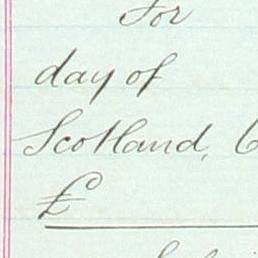 For
day of
Scotland,
£